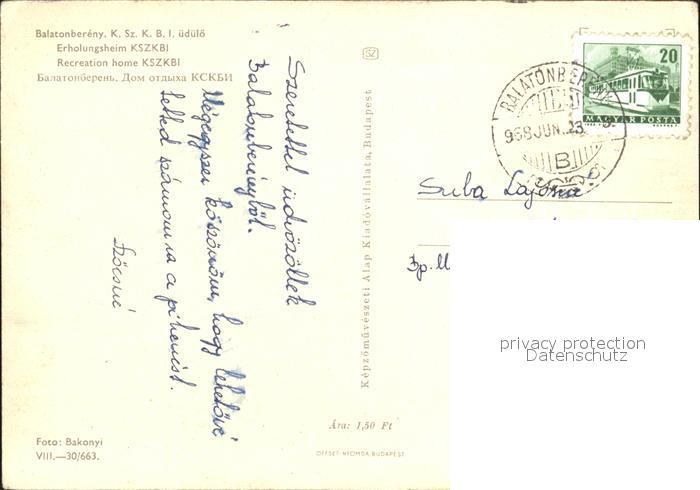 Balatonberény. K. Sz. K. B. I. üdülő
Erholungsheim KSZKBI
Recreation home KSZKBI
Балатонберень. Дом отдыха КСКБИ
Szeretettel üdvözöllek
Balatonberényből.
Mégegyszer köszönöm, hogy lehetővé
tetted számomra a pihenést.
Szőcsné
Foto: Bakonyi
VIII.—30/663.
SZ
Képzőművészeti Alap Kiadóvállalata, Budapest
Ára: 1,50 Ft
OFFSET-NYOMDA, BUDAPEST
20
MAGYAR POSTA
BALATONBERÉNY
968 JUN. 23
B
Suba Lajosné
Bp.
privacy protection
Datenschutz